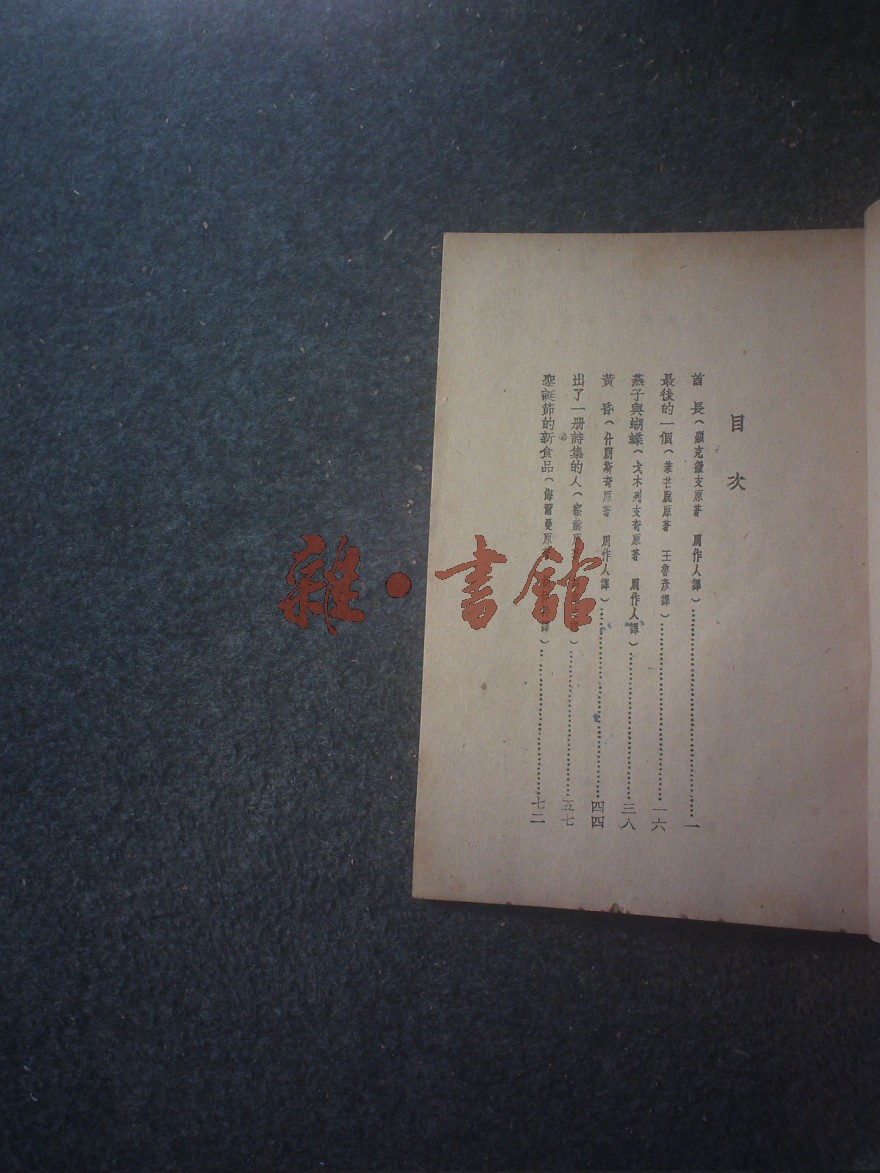 目次
酋長(顯克微支原著 周作人譯)……一
最後的一個(萊芒脫原著 王魯彥譯)……一六
燕子與蝴蝶(戈木列支奇原著 周作人譯)……三八
黃昏(什朗斯奇原著 周作人譯)……四四
出了一册詩集的人(……五七
聖誕節的新食品(……譯)……七二
雜·書館